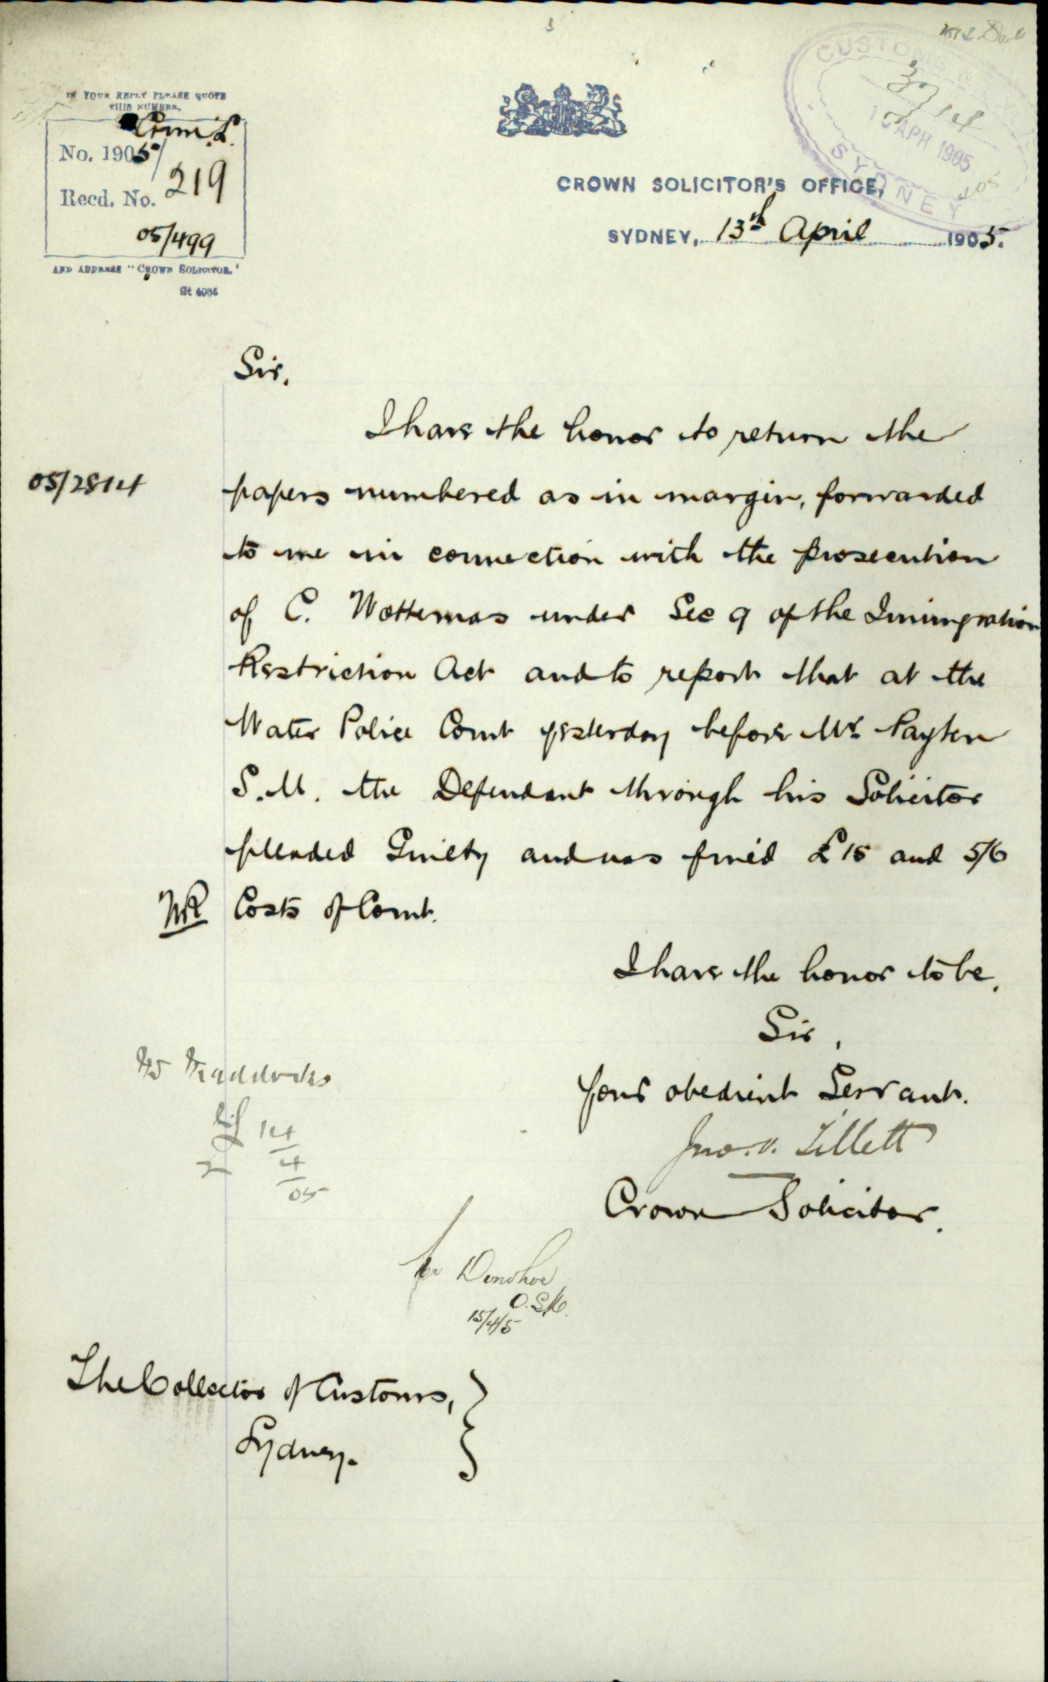 IN YOUR REPLY PLEASE QUOTE
THIS NUMBER.
Crim. L.
No. 1905/
219
Recd. No.
05/499
AND ADDRESS "CROWN SOLICITOR."
CUSTOMS
APR 1905
SYDNEY
CROWN SOLICITOR'S OFFICE,
SYDNEY, 13th April 1905.
Sir,
I have the honor to return the
05/2814 papers numbered as in margin, forwarded
to me in connection with the prosecution
of C. under Sec 9 of the Immigration
Restriction Act and to report that at the
Water Police Court yesterday before Mr. Payten
S.M. the Defendant through his Solicitor
pleaded Guilty and was fined £15 and 5/6
Costs of Court.
I have the honor to be,
Sir,
Your obedient Servant.
Jno. V. Tillett
Crown Solicitor.
14
4
05
Mr Donohoe
15/4/5
The Collector of Customs,
Sydney.